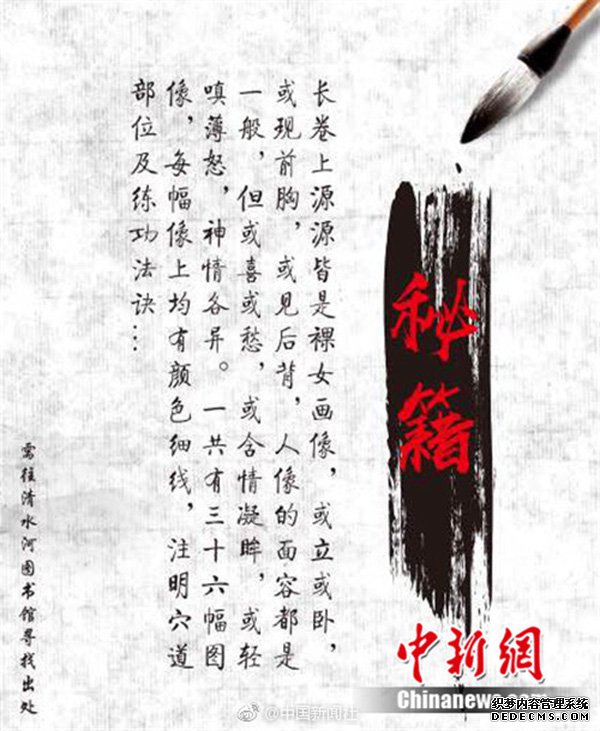 秘籍
长卷上源源皆是裸女画像，或立或卧，
或现前胸，或见后背，人像的面容都是
一般，但或喜或愁，或含情凝眸，或轻
嗔薄怒，神情各异。一共有三十六幅图
像，每幅像上均有颜色细线，注明穴道
部位及练功法诀…
需往清水河图书馆寻找出处
中新網
Chinanews.com
@中国新闻社
织梦内容管理系统
DEDECMS.COM